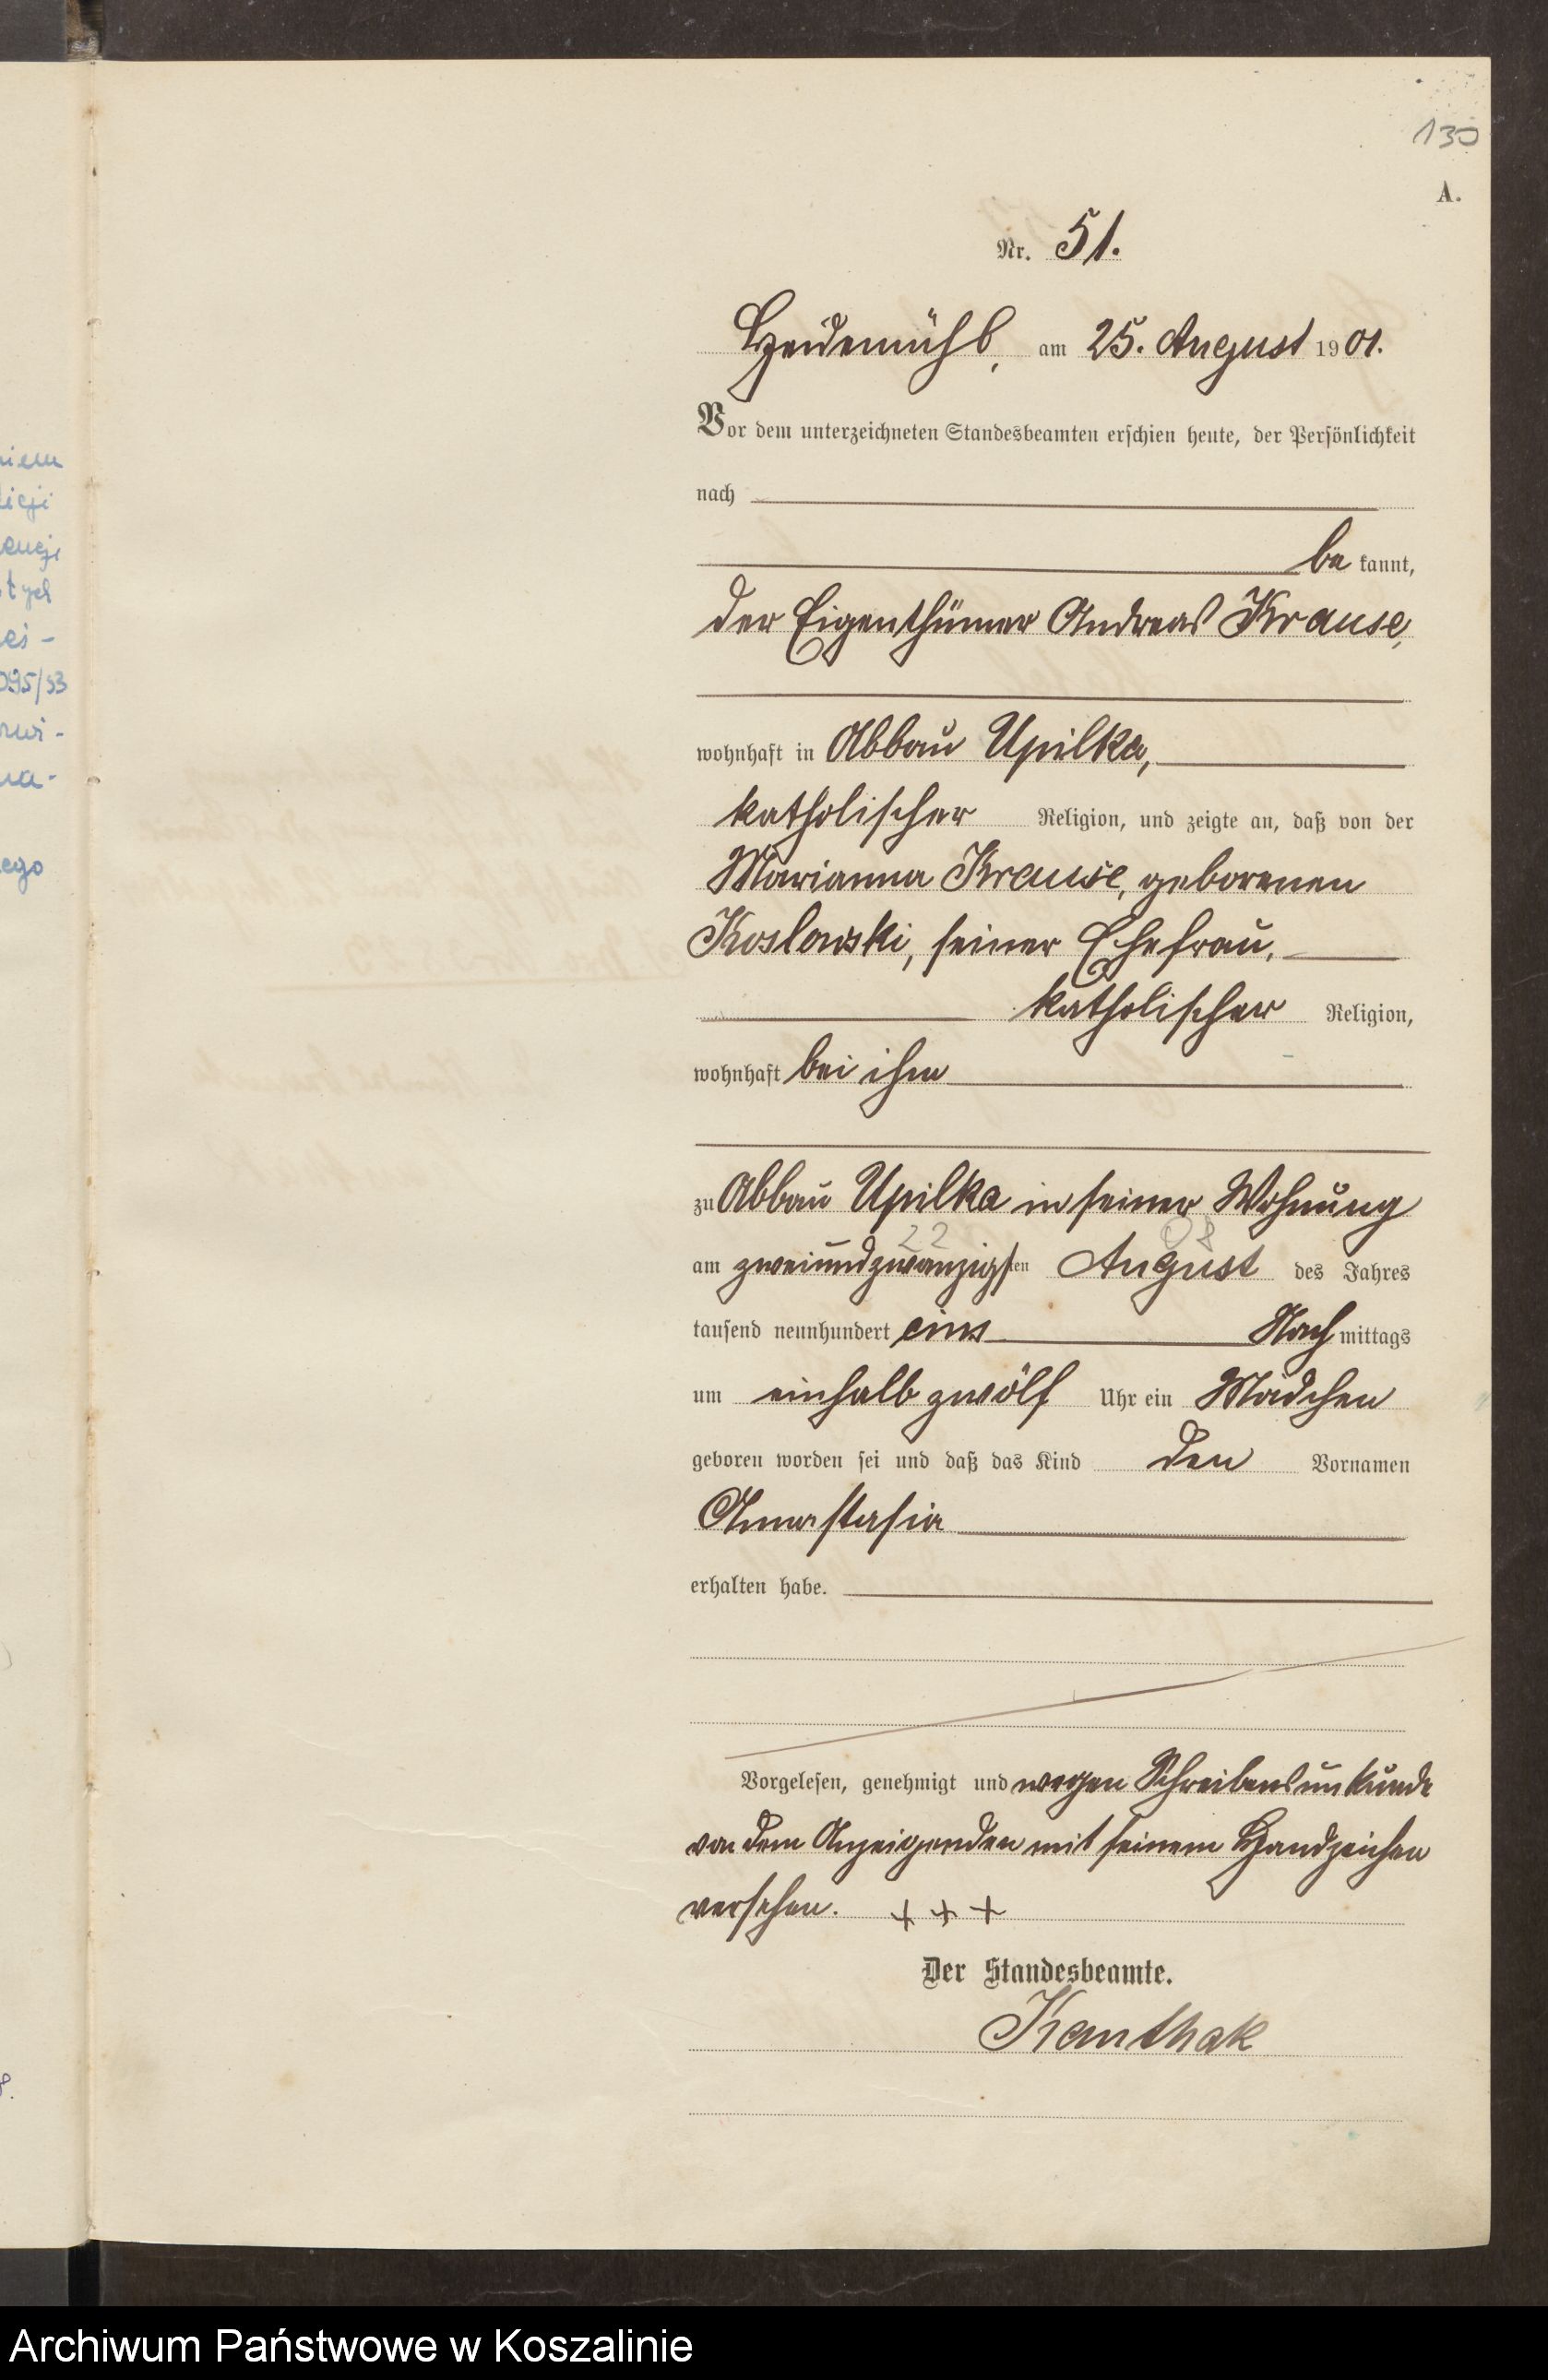 130
A.
Nr. 51.
Heidemühl, am 25. August 1901.
Vor dem unterzeichneten Standesbeamten erschien heute, der Persönlichkeit
nach
be kannt,
der Eigenthümer Andreas Krause,
wohnhaft in Abbau Upilka,
katholischer Religion, und zeigte an, daß von der
Marianna Krause, geborenen
Koslowski, seiner Ehefrau,
katholischer Religion,
wohnhaft bei ihm
zu Abbau Upilka in seiner Wohnung
22 08
am zweiundzwanzigsten August des Jahres
tausend neunhundert eins Nach mittags
um einhalb zwölf Uhr ein Mädchen
geboren worden sei und daß das Kind den Vornamen
Anastasia
erhalten habe.
Vorgelesen, genehmigt und wegen Schreibensunkunde
von dem Anzeigenden mit seinem Handzeichen
versehen. + + +
Der Standesbeamte.
Kanthak
095/53
ego
Archiwum Państwowe w Koszalinie